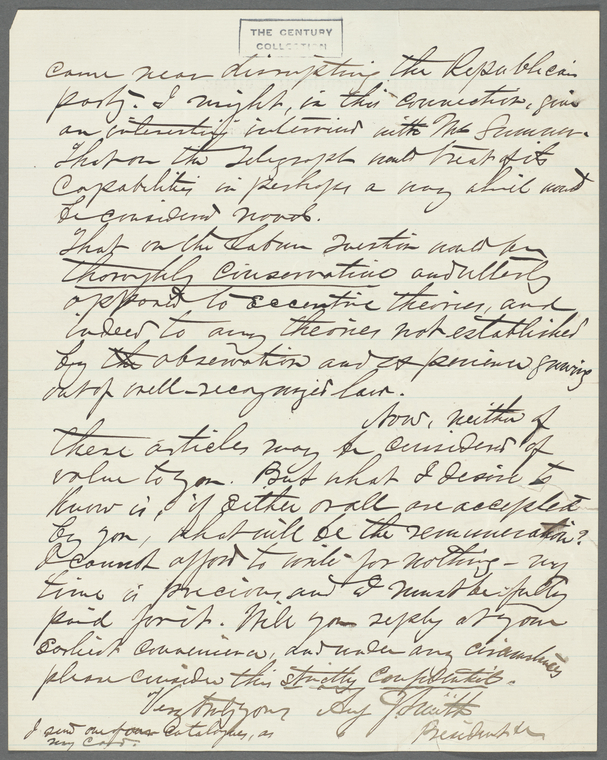 THE CENTURY
COLLECTION
came near disrupting the Republican
party. I might, in this connection, give
an interesting interview with Mr Sumner.
That on the Telegraph would treat of its
capabilities in perhaps a way which would
be considered novel.
That on the Labor question would be
thoroughly conservative and utterly
opposed to eccentric theories, and
indeed to any theories not established
by th observation and experience growing
out of well-recognized law.
Now, neither of
these articles may be considered of
value to you. But what I desire to
know is, if either or all are accepted
by you, what will be the remuneration?
I cannot afford to write for nothing – my
time is precious and I must be fully
paid for it. Will you reply at your
earliest convenience, and under any circumstances
please consider this strictly confidential.
Very truly yours
I send one of our Catalogues, as
my Card.
President &c